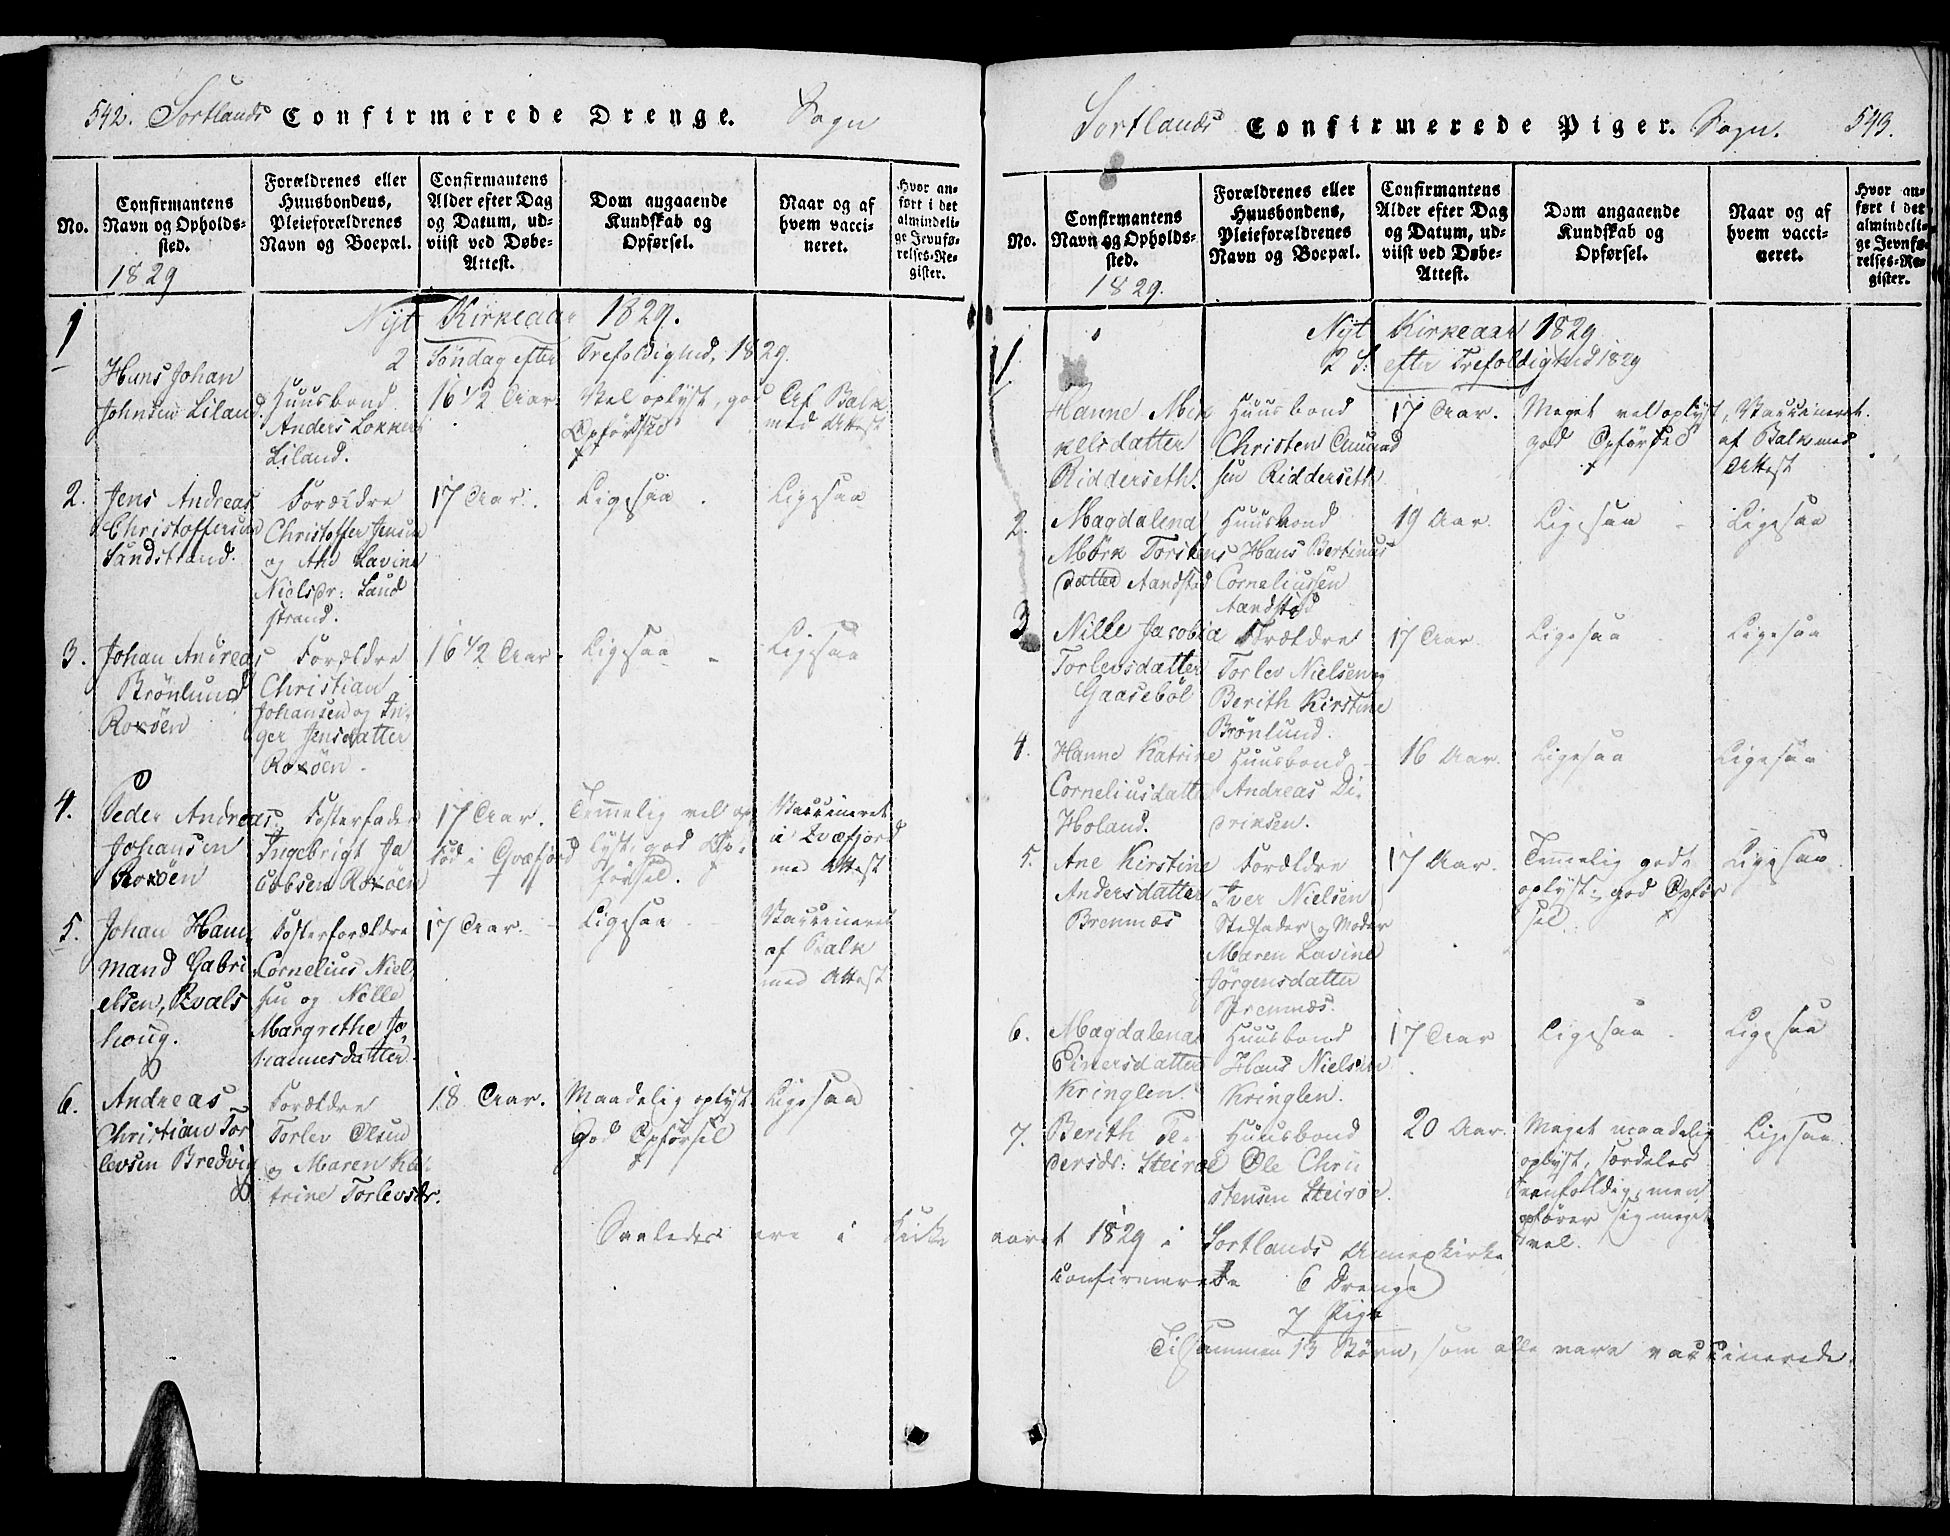 542. Sortlands Confirmerede Drenge. Sogn
No.
Confirmantens
Navn og Opholds-
sted.
1829
Forældrenes eller
Huusbondens,
Pleieforældrenes
Navn og Boepæl.
Confirmantens
Alder efter Dag
og Datum, ud-
viist ved Døbe-
Attest.
Dom angaaende
Kundskab og
Opførsel.
Naar og af
hvem vacci-
neret.
Hvor an-
ført i det
almindeli-
ge Jevnfø-
relses-Re-
gister.
Nyt Kirkeaar 1829.
2 Søndag efter Trefoldighed, 1829.
1
Hans Johan
Johnsen Liland.
Huusbond
Anders
Liland.
16 1/2 Aar
Vel oplyst, god
Opførsel
Af Balk
med Attest
2.
Jens Andreas
Christoffersen
Sandstrand.
Forældre
Christoffer Jensen
og Ane Lavine
Nielsdr: Sand
strand.
17 Aar.
Ligesaa
Ligesaa
3.
Johan Andreas
Brönlund
Roxöen
Forældre
Christian
Johansen og In-
ger Jensdatter
Roxöen.
16 1/2 Aar
Ligesaa
Ligesaa
4.
Peder Andreas
Johansen
Roxöen
Fosterfader
Ingebrigt Ja
cobsen Roxöen
17 Aar.
fød i Qvæfjord
Temelig vel op
lyst, god Op-
førsel.
Vaccineret
i Qvæfjord
med Attest
5.
Johan Ham
mand Gabri
elsen, Kvals
houg.
Fosterforældre
Cornelius Niel
sen og Nille
Margrethe Jo
hannesdatter
17 Aar.
Ligesaa
Vaccineret
af Balk
med Attest
6.
Andreas
Christian Tor
levsen Bredvig
Forældre
Torlev Olsen
og Maren Ka-
trine Torlevsdr.
18 Aar.
Maadelig oplyst
God Opførsel
Ligesaa
Sortlands Confirmerede Piger. Sogn. 543.
No.
Confirmantens
Navn og Opholds-
sted.
1829.
Forældrenes eller
Huusbondens,
Pleieforældrenes
Navn og Boepæl.
Confirmantens
Alder efter Dag
og Datum, ud-
viist ved Døbe-
Attest.
Dom angaaende
Kundskab og
Opførsel.
Naar og af
hvem vacci-
neret.
Hvor an-
ført i det
almindeli-
ge Jevnfø-
relses-Re-
gister.
Nyt Kirkeaar 1829
2 S: efter Trefoldighed 1829
1
Hanne Mik
kelsdatter
Ridderseth.
Huusbond
Christen Amund
sen Ridderseth
17 Aar.
Meget vel oplyst,
god Opførsel
Vaccineret
af Balk med
Attest
2.
Magdalena
Mörk Torstens
datter Aandstad
Huusbond
Hans Bertinus
Corneliussen
Aandstad
19 Aar.
Ligesaa
Ligesaa
3
Nille Jacobia
Torlevsdatter
Gaaseböl
Forældre
Torlev Nielsen og
Berith Kirstine
Brönlund.
17 Aar.
Ligesaa
Ligesaa
4.
Hanne Katrine
Corneliusdatter
Holand.
Huusbond
Andreas Di-
driksen.
16 Aar.
Ligesaa
Ligesaa
5.
Ane Kirstine
Andersdatter
Bremnæs
Forældre
Iver Nielsen
Stedfader og Moder
Maren Lavine
Jörgensdatter
Bremnæs.
17 Aar.
Temelig godt
oplyst, god Opfør
sel.
Ligesaa
6.
Magdalena
Einersdatter
Kringlen.
Huusbond
Hans Nielsen
Kringlen.
17 Aar
Ligesaa
Ligesaa
7.
Berith Pe-
dersdr: Steiröe
Huusbond
Ole Chri
stensen Steiröe.
20 Aar.
Meget maadelig
oplyst, særdeles
eenfoldig, men
opfører sig meget
vel.
Ligesaa
Saaledes ere i Kirke aaret 1829 i Sortlands Annexkirke
confirmerede 6 Drenge
7 Piger
Tilsammen 13 Børn, som alle vare vaccinerede.